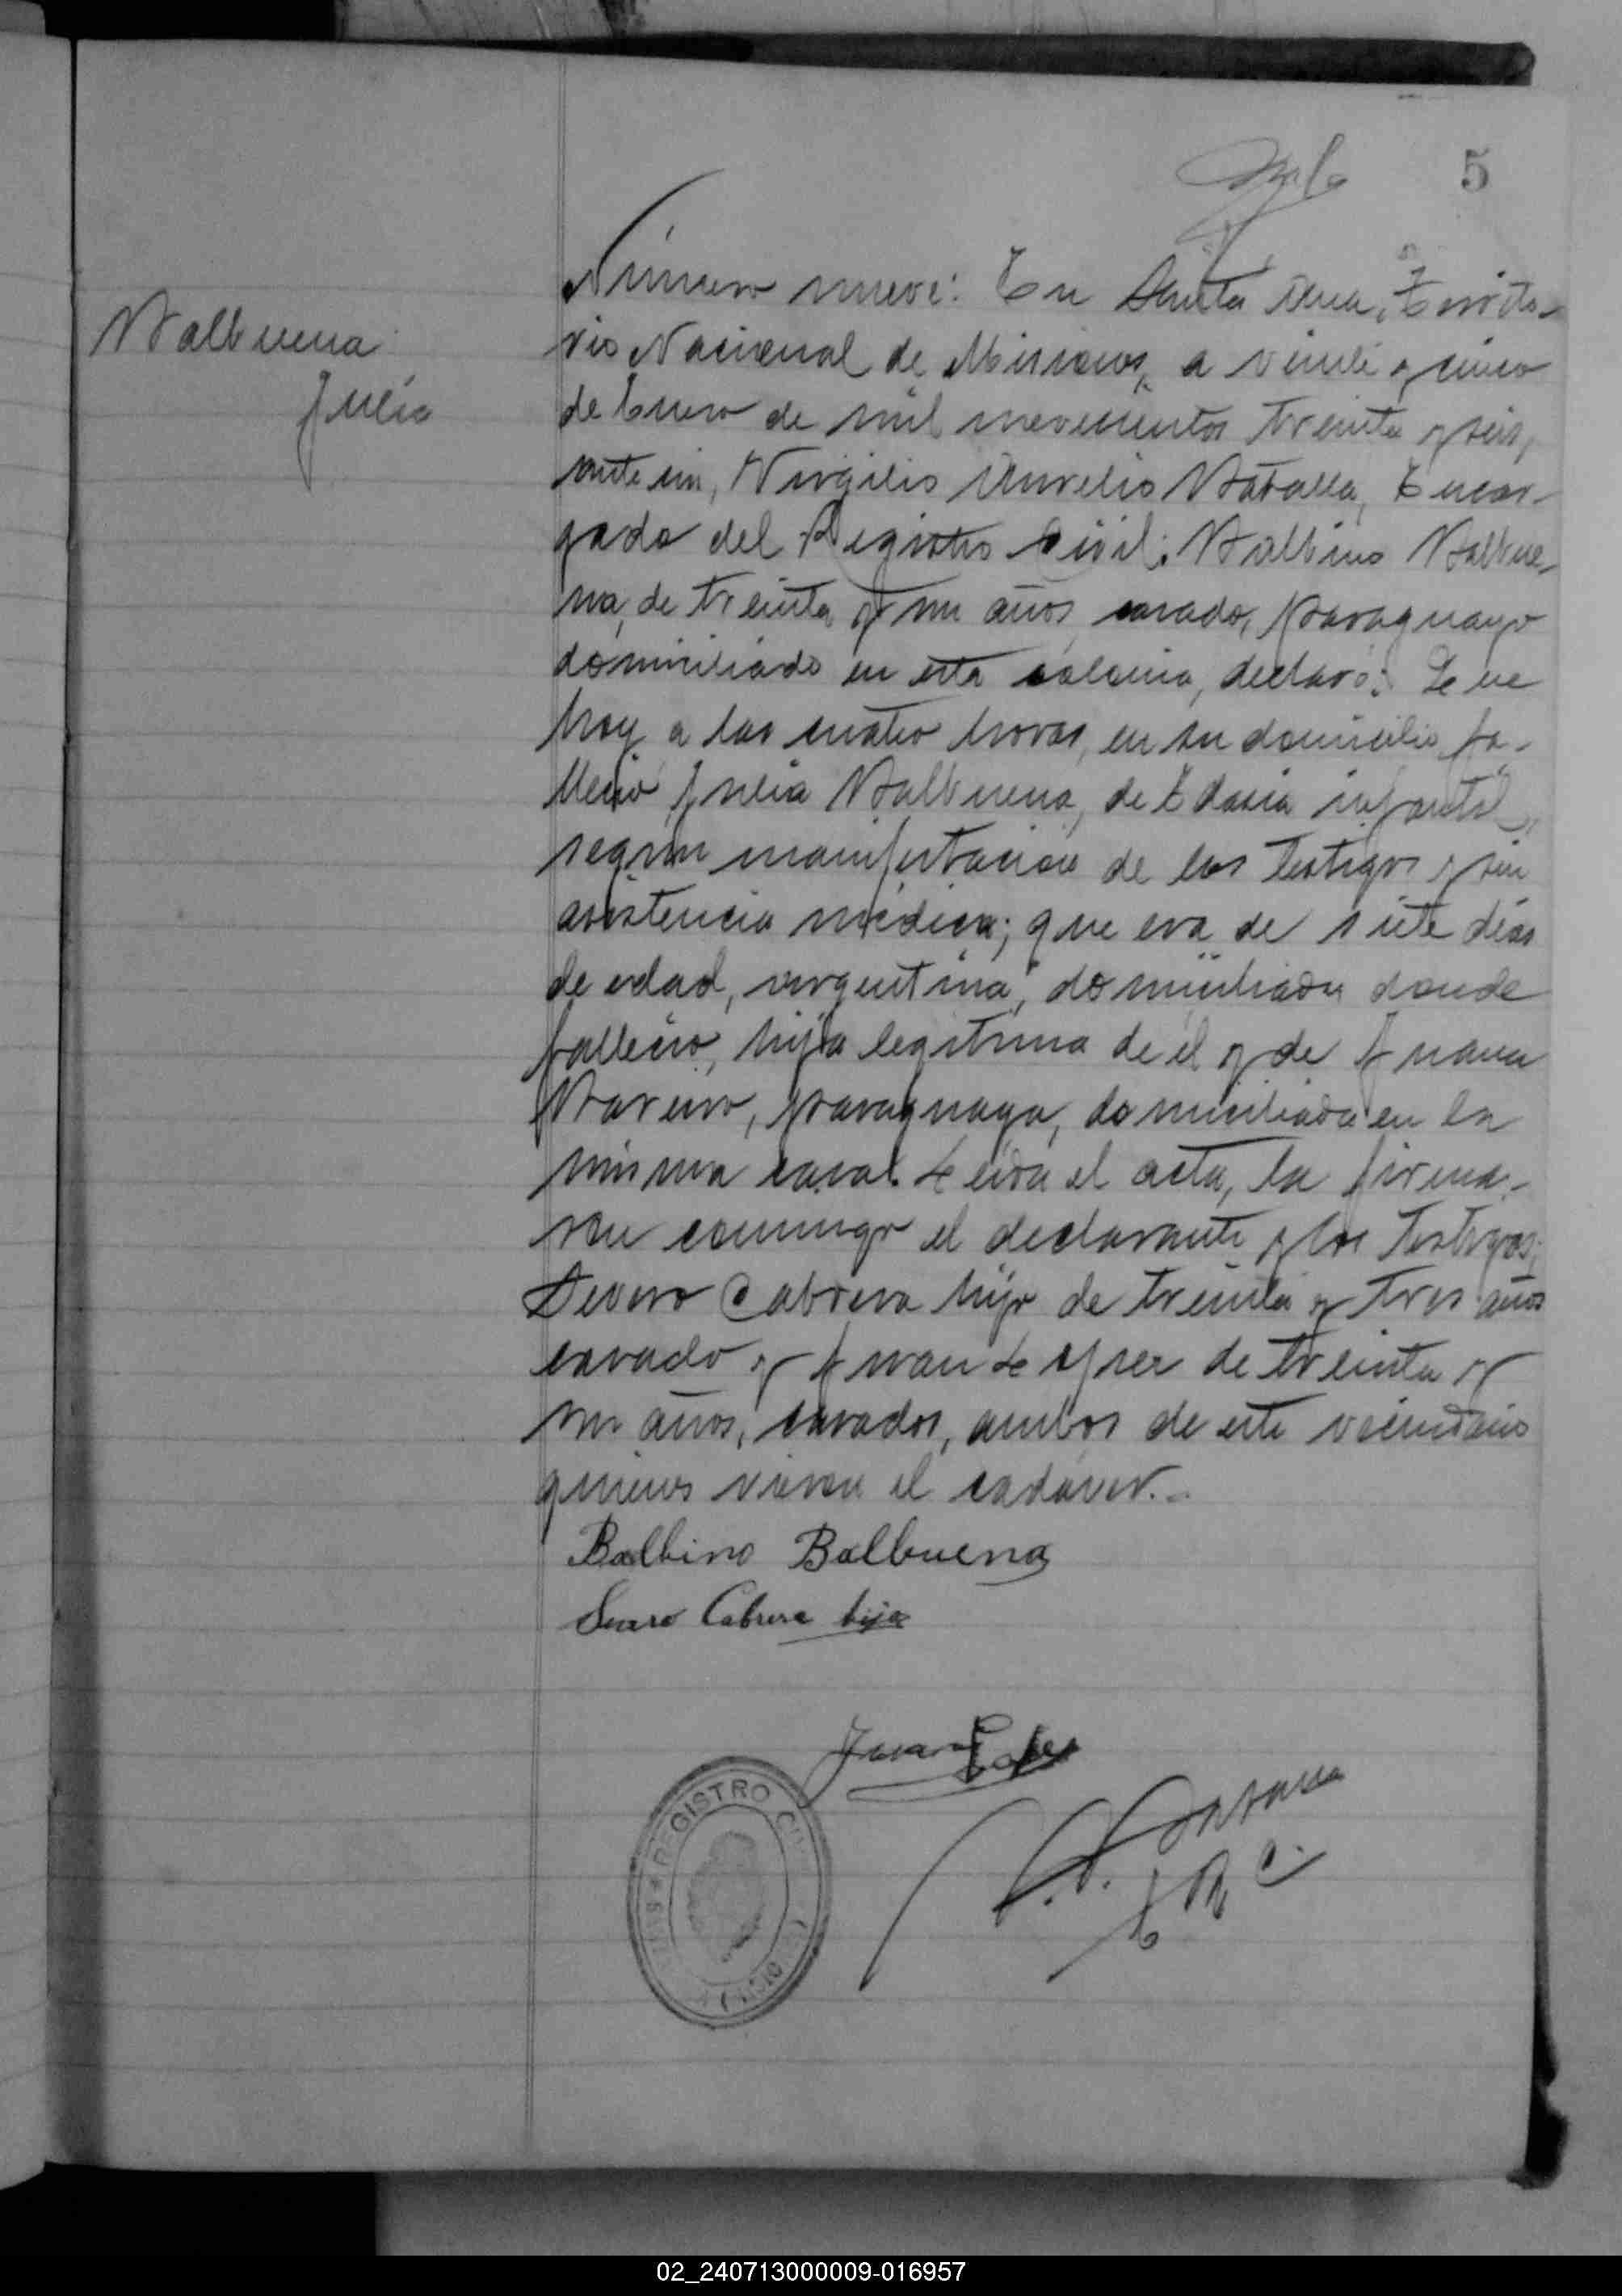 5
Balbuena
Julia
Número nueve: En Santa Ana, Territo-
rio Nacional de Misiones, a veinte y cinco
de Enero de mil novecientos treinta y seis,
ante mi, Virgilio Aurelio Baralla, Encar-
gado del Registro Civil: Balbino Balbue-
na, de treinta y un años, casado, paraguayo
domiciliado en esta colonia, declaró: Que
hoy a las cuatro horas, en su domicilio fa-
lleció Julia Balbuena, de
infantil,
segun manifestación de los testigos y sin
asistencia médica; que era de siete dias
de edad, argentina, domiciliada donde
falleció, hija legitima de él y de Juana
Bareiro, paraguaya, domiciliada en la
misma casa. Leida el acta, la firma-
ron conmigo el declarante y los testigos;
Severo Cabrera hijo de treinta y tres años
casado y Juan Lopez de treinta y
un años, casados, ambos de este vecindario
quienes vieron el cadáver.-
Balbino Balbuena
Severo Cabrera hijo
Juan Lopez
E R C
REGISTRO CIVIL
02_240713000009-016957